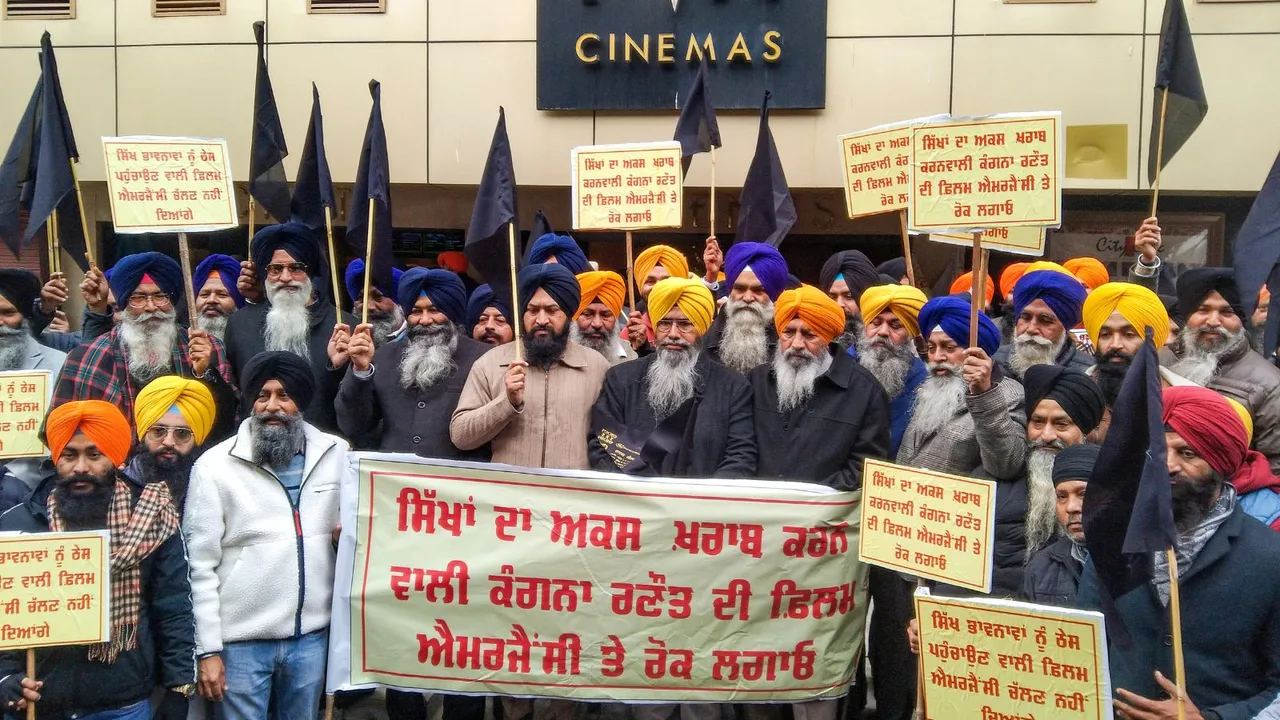 CINEMAS
ਸਿੱਖ ਭਾਵਨਾਵਾਂ ਨੂੰ ਠੇਸ
ਪਹੁੰਚਾਉਣ ਵਾਲੀ ਫ਼ਿਲਮ
ਐਮਰਜੈਂਸੀ ਚੱਲਣ ਨਹੀਂ
ਦਿਆਂਗੇ
ਸਿੱਖਾਂ ਦਾ ਅਕਸ ਖ਼ਰਾਬ
ਕਰਨਵਾਲੀ ਕੰਗਨਾ ਰਣੌਤ
ਦੀ ਫ਼ਿਲਮ ਐਮਰਜੈਂਸੀ ਤੇ
ਰੋਕ ਲਗਾਓ
ਸਿੱਖਾਂ ਦਾ ਅਕਸ
ਕਰਨਵਾਲੀ
ਦੀ ਫ਼ਿਲਮ
ਸਿੱਖਾਂ ਦਾ ਅਕਸ ਖ਼ਰਾਬ
ਕਰਨਵਾਲੀ ਕੰਗਨਾ ਰਣੌਤ
ਦੀ ਫ਼ਿਲਮ ਐਮਰਜੈਂਸੀ ਤੇ
ਰੋਕ ਲਗਾਓ
City
ਸਿੱਖਾਂ ਦਾ ਅਕਸ ਖ਼ਰਾਬ ਕਰਨ
ਵਾਲੀ ਕੰਗਨਾ ਰਣੌਤ ਦੀ ਫ਼ਿਲਮ
ਐਮਰਜੈਂਸੀ ਤੇ ਰੋਕ ਲਗਾਓ
ਸਿੱਖਾਂ ਦਾ ਅਕਸ ਖ਼ਰਾਬ
ਕਰਨਵਾਲੀ ਕੰਗਨਾ ਰਣੌਤ
ਦੀ ਫ਼ਿਲਮ ਐਮਰਜੈਂਸੀ ਤੇ
ਰੋਕ ਲਗਾਓ
ਭਾਵਨਾਵਾਂ ਨੂੰ ਠੇਸ
ਵਾਲੀ ਫ਼ਿਲਮ
ਚੱਲਣ ਨਹੀਂ
ਦਿਆਂਗੇ
ਸਿੱਖ ਭਾਵਨਾਵਾਂ ਨੂੰ ਠੇਸ
ਪਹੁੰਚਾਉਣ ਵਾਲੀ ਫ਼ਿਲਮ
ਐਮਰਜੈਂਸੀ ਚੱਲਣ ਨਹੀਂ
ਦਿਆਂਗੇ